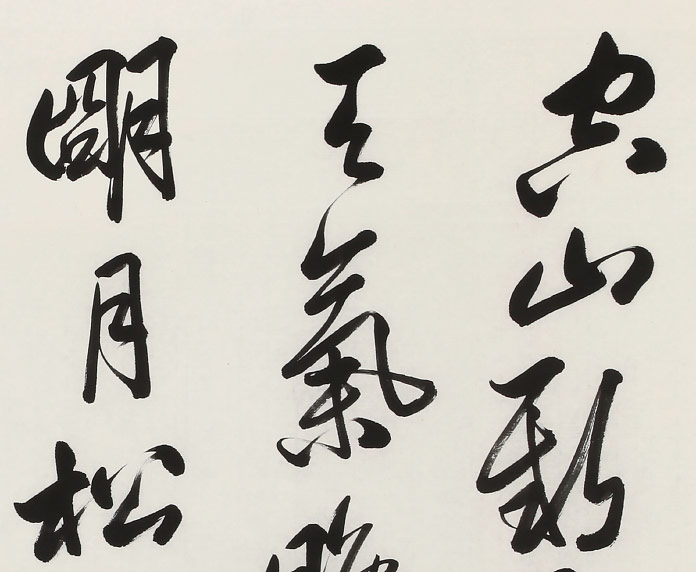 空山新
天氣晚
明月松